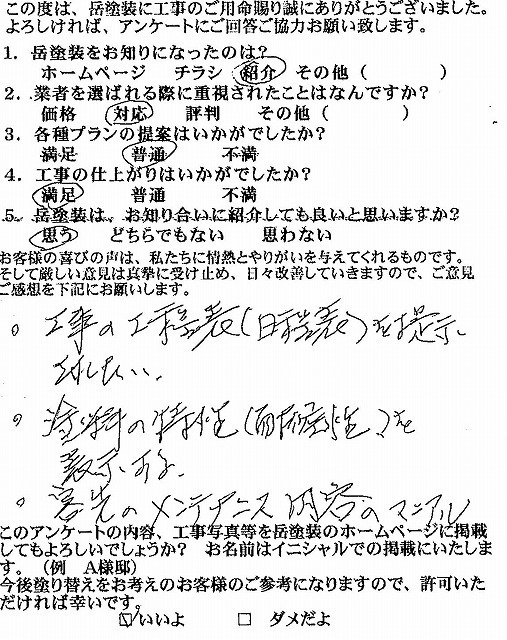 この度は、岳塗装に工事のご用命賜り誠にありがとうございました。
よろしければ、アンケートにご回答ご協力お願い致します。
1．岳塗装をお知りになったのは？
ホームページ　チラシ　紹介　その他（　　　）
2．業者を選ばれる際に重視されたことはなんですか？
価格　対応　評判　その他（　　　）
3．各種プランの提案はいかがでしたか？
満足　普通　不満
4．工事の仕上がりはいかがでしたか？
満足　普通　不満
5．岳塗装は、お知り合いに紹介しても良いと思いますか？
思う　どちらでもない　思わない
お客様の喜びの声は、私たちに情熱とやりがいを与えてくれるものです。
そして厳しい意見は真摯に受け止め、日々改善していきますので、ご意見
ご感想を下記にお願いします。
○ 工事の工程表（日程表）を提示
されたい、
○ 塗料の特性（耐候性）を
表示する、
○ 客先のメンテナンス内容のマニアル
このアンケートの内容、工事写真等を岳塗装のホームページに掲載
してもよろしいでしょうか？　お名前はイニシャルでの掲載にいたしま
す。（例　A様邸）
今後塗り替えをお考えのお客様のご参考になりますので、許可いた
だければ幸いです。
☑いいよ　□ ダメだよ